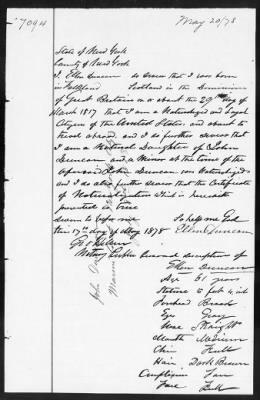 7094
May 20/78
State of New York
County of New York
I, Ellen Duncan do swear that I was born
in Falkland Scotland in the Dominion
of Great Britain on or about the 29th day of
March 1817 that I am a Naturalized and Loyal
Citizen of the United States, and about to
travel abroad, and I do further swear that
I am a Natural Daughter of John
Duncan and a Minor at the time of the
said John Duncan was Naturalized
and I do also further swear that the Certificate
of Naturalization which is herewith
presented is true
Sworn to before me So help me God
this 17th day of May 1878 Ellen Duncan
Notary Public personal description of
Ellen Duncan
Age 61 years
Stature 5 feet 4 inch
Forehead Broad
Eyes Gray
Nose Straight
Mouth Medium
Chin Full
Hair Dark Brown
Complexion Fair
Face Full
John